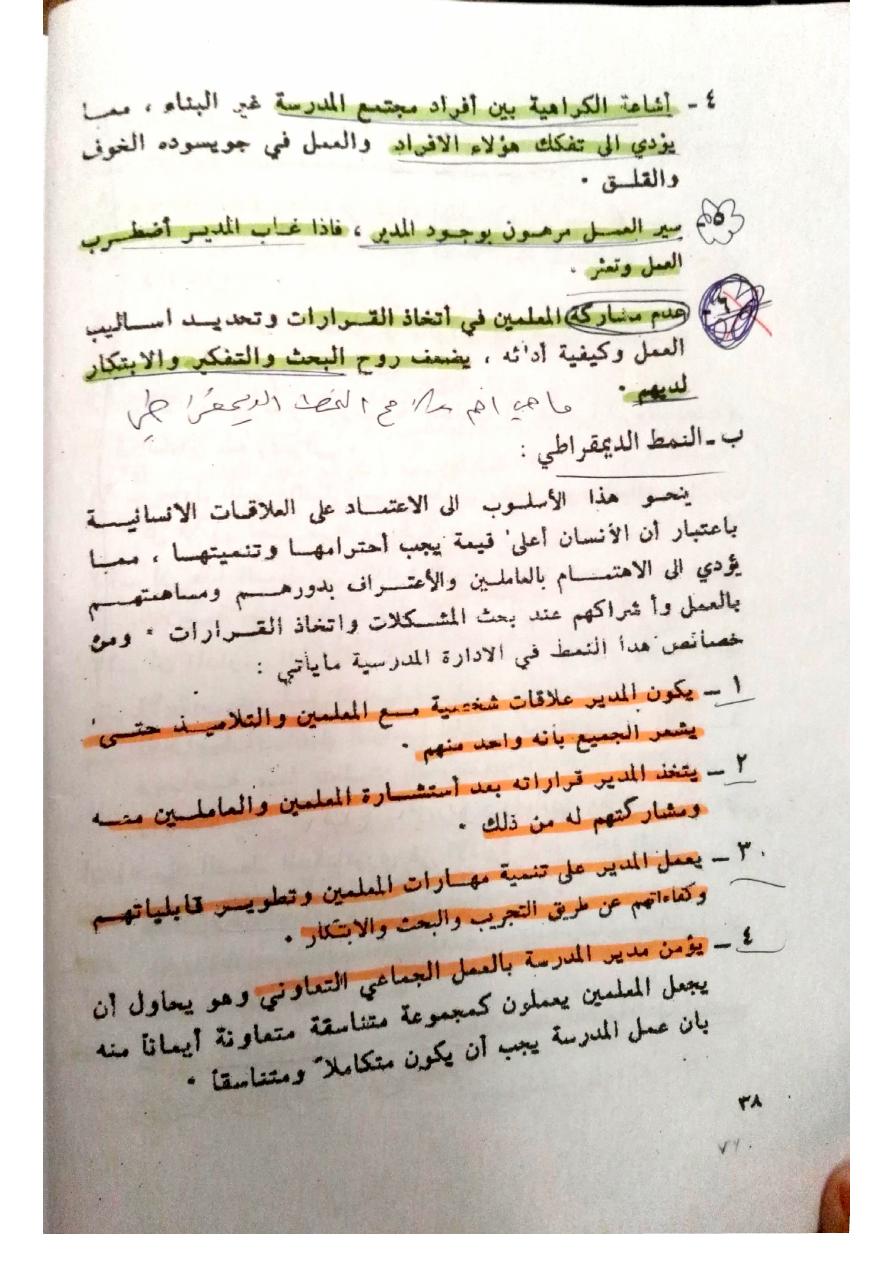 ٤ ـ أشاعة الكراهية بين أفراد مجتمع المدرسة غير البناء ، ممـا
يؤدي الى تفكك هؤلاء الافراد والعمل في جويسوده الخوف
والقلـق .
٥ ـ سير العمـل مرهـون بوجـود المدير ، فاذا غـاب المديـر أضطـرب
العمل وتعثر .
٦ ـ عدم مشاركة المعلمين في أتخاذ القـرارات وتحديـد اسـاليب
العمل وكيفية أدائه ، يضعف روح البحث والتفكير والابتكار
لديهم .
ما هي اهم ملامح النمط الديمقراطي
ب ـ النمط الديمقراطي :
ينحـو هذا الأسلوب الى الاعتمـاد على العلاقـات الانسانيـة
باعتبار أن الأنسان أعلى قيمة يجب أحترامهـا وتنميتهـا ، ممـا
يؤدي الى الاهتمـام بالعاملين والأعتـراف بدورهـم ومساهمتهـم
بالعمل وأشراكهم عند بحث المشـكلات واتخاذ القـرارات . ومن
خصائص هذا النمط في الادارة المدرسية مايأتي :
١ ـ يكون المدير علاقات شخصية مـع المعلمين والتلاميـذ حتـى
يشعر الجميع بأنه واحد منهم .
٢ ـ يتخذ المدير قراراته بعد أستشـارة المعلمين والعاملـين منـه
ومشاركتهم له من ذلك .
٣ ـ يعمل المدير على تنمية مهـارات المعلمين وتطويـر قابلياتهـم
وكفاءاتهم عن طريق التجريب والبحث والابتكار .
٤ ـ يؤمن مدير المدرسة بالعمل الجماعي التعاوني وهو يحاول أن
يجعل المعلمين يعملون كمجموعة متناسقة متعاونة أيماناً منه
بان عمل المدرسة يجب أن يكون متكاملاً ومتناسقاً .
٣٨